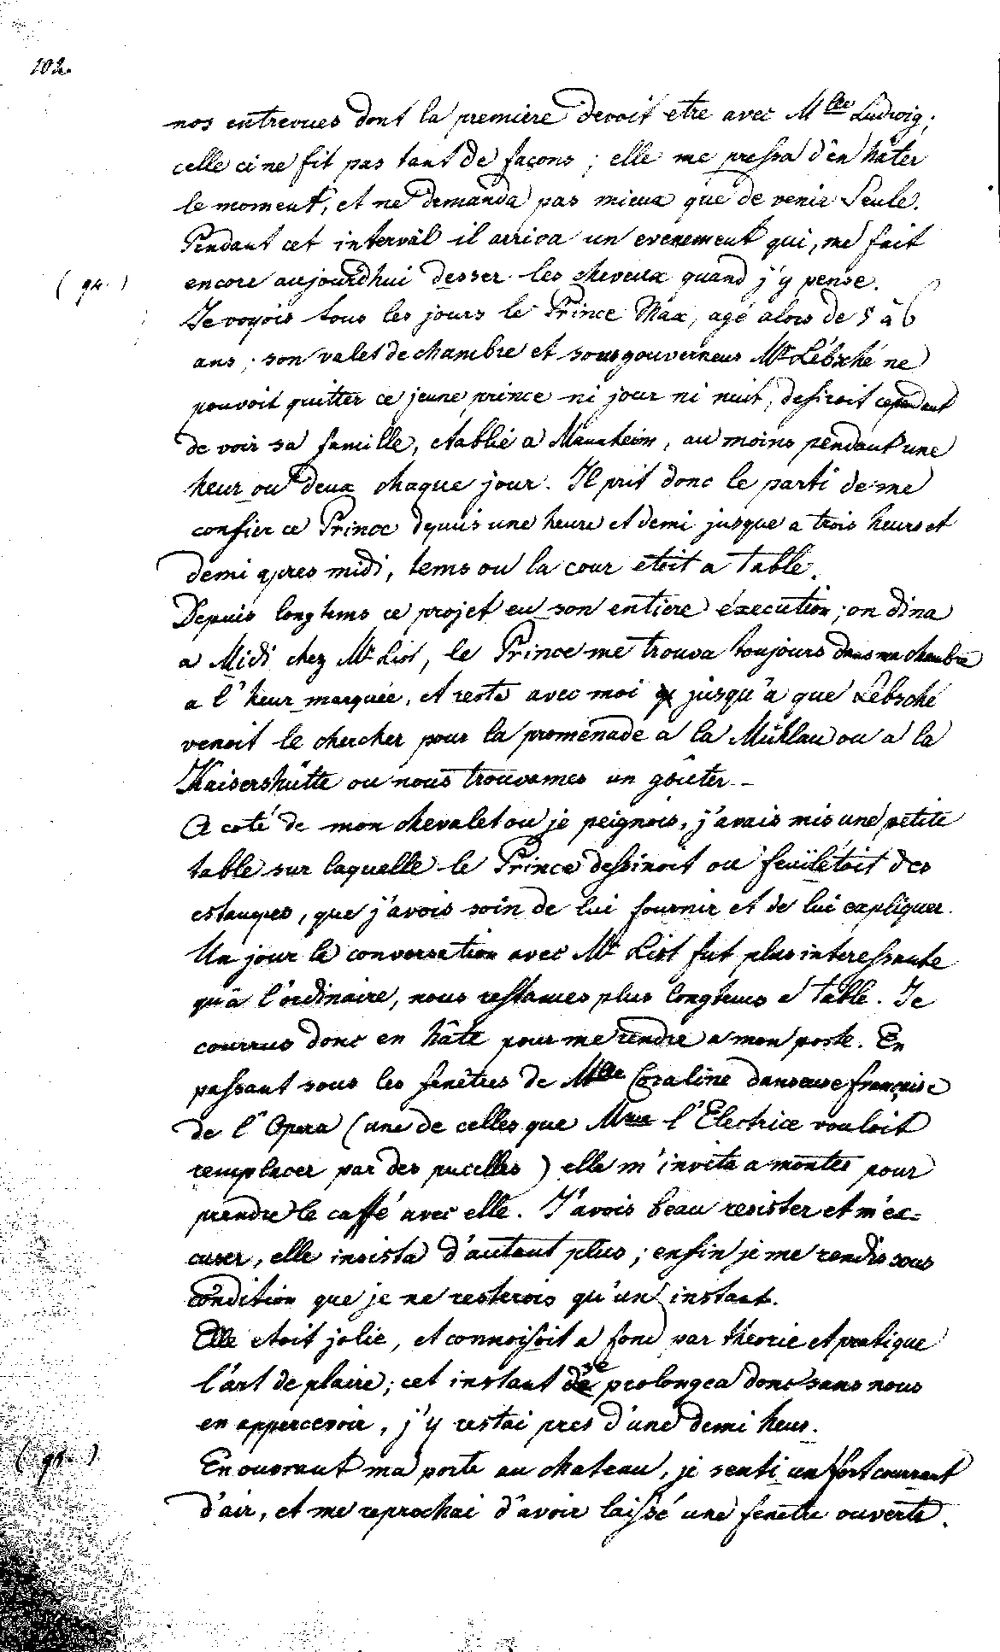 102.
nos entrevues dont la premiere devoit etre avec Mlle Ludwig;
celle ci ne fit pas tant de façons; elle me pressa d'en hâter
le moment, et ne demanda pas mieux que de venir Seule.
Pendant cet interval il arriva un evenement qui, me fait
encore aujourd'hui desser les cheveux quand j'y pense.
Je voyois tous les jours le Prince Max, agé alors de 5 a 6
ans; son valet de chambre et sousgouverneur Mr Lebsché ne
pouvoit quitter ce jeune prince ni jour ni nuit, desiroit cependant
de voir sa famille, etablie a Mannheim, au moins pendant une
heur ou deux chaque jour. Il prit donc le parti de me
confier ce Prince depuis une heure et demi jusque a trois heurs et
demi apres midi, tems ou la cour etoit a table.
Depuis longtems ce projet eu son entiere éxecution; on dina
a Midi chez Mr List, le Prince me trouva toujours dans ma chambre
a l'heur marquée, et resta avec moi jusqu'a que Lebsché
venoit le chercher pour la promenade a la Mühlau ou a la
Kaisershütte ou nous trouvames un goûter -
A coté de mon chevalet ou je peignois, j'avais mis une petite
table sur laquelle le Prince dessinoit ou feuïletoit des
estampes, que j'avois soin de lui fournir et de lui expliquer.
Un jour la conversation avec Mr List fut plus interessante
qu'a l'ordinaire, nous restames plus longtems a table. Je
courrus donc en hâte pour me rendre a mon poste. En
passant sous les fenêtres de Mlle Coraline danseuse française
de l'Opera (une de celles que Mme l'Electrice vouloit
remplacer par des pucelles) elle m'invita a monter pour
prendre le caffé avec elle. J'avois beau resister et m'ex=
cuser, elle insista d'autant plus; enfin je me rendis sous
condition que je ne resterois qu'un instant.
Elle etoit jolie, et connoisoit a fond par théorie et pratique
l'art de plaire; cet instant se prolongea donc sans nous
en appercevoir, j'y restai pres d'une demi heur.
En ouvrant ma porte au chateau, je senti un fort courrant
d'air, et me reprochai d'avoir laissé une fenetre ouverte.